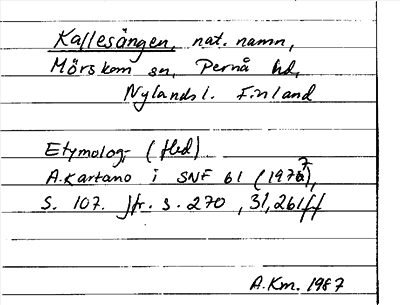 Kallesängen, nat. namn,
Mörskom sn, Pernå hd,
Nylands l. Finland
Etymologi (fled)
A. Kartano i SNF 61 (1977),
s. 107. Jfr. s. 270, 31, 261 ff
A.Km. 1987